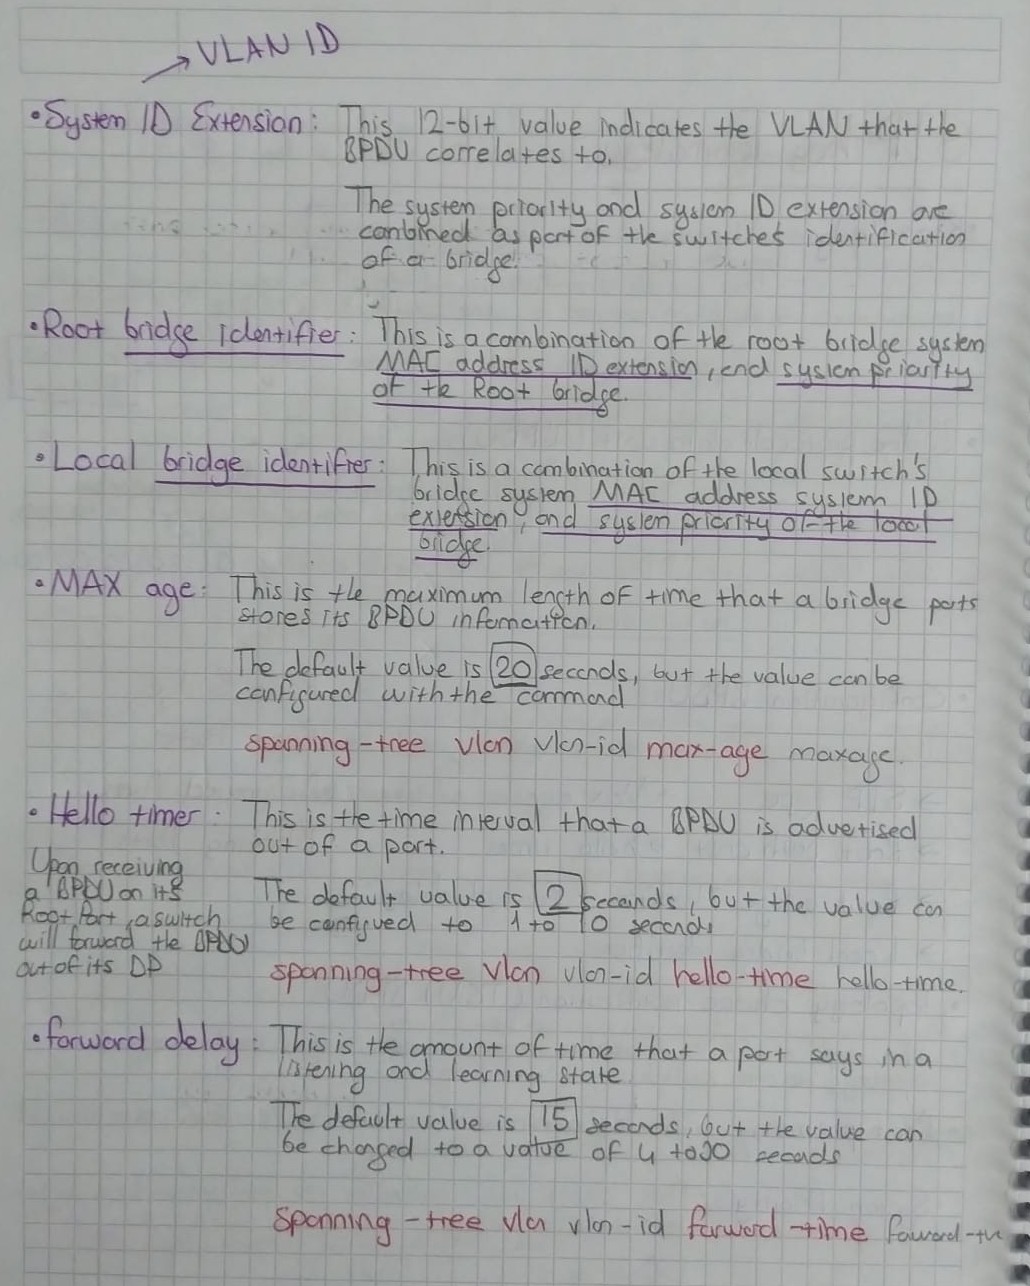 → VLAN ID
• System ID Extension: This 12-bit value indicates the VLAN that the
BPDU correlates to.
The system priority and system ID extension are
conbined as part of the switches identification
of a bridge.
• Root bridge identifier: This is a combination of the root bridge system
MAC address ID extension, and system priority
of the Root bridge.
• Local bridge identifier: This is a combination of the local switch's
bridge system MAC address system ID
extension, and system priority of the local
bridge.
• MAX age: This is the maximum length of time that a bridge ports
stores its BPDU infomation.
The default value is 20 seconds, but the value can be
configured with the command
spanning-tree vlan vlan-id max-age maxage.
• Hello timer: This is the time interval that a BPDU is advertised
out of a port.
Upon receiving
a BPDU on its
Root Port, a switch
will forward the BPDU
out of its DP
The default value is 2 seconds, but the value can
be configued to 1 to 10 seconds
spanning-tree vlan vlan-id hello-time hello-time.
• forward delay: This is the amount of time that a port says in a
listening and learning state
The default value is 15 seconds, but the value can
be changed to a value of 4 to 30 seconds
spanning-tree vlan vlan-id forward-time